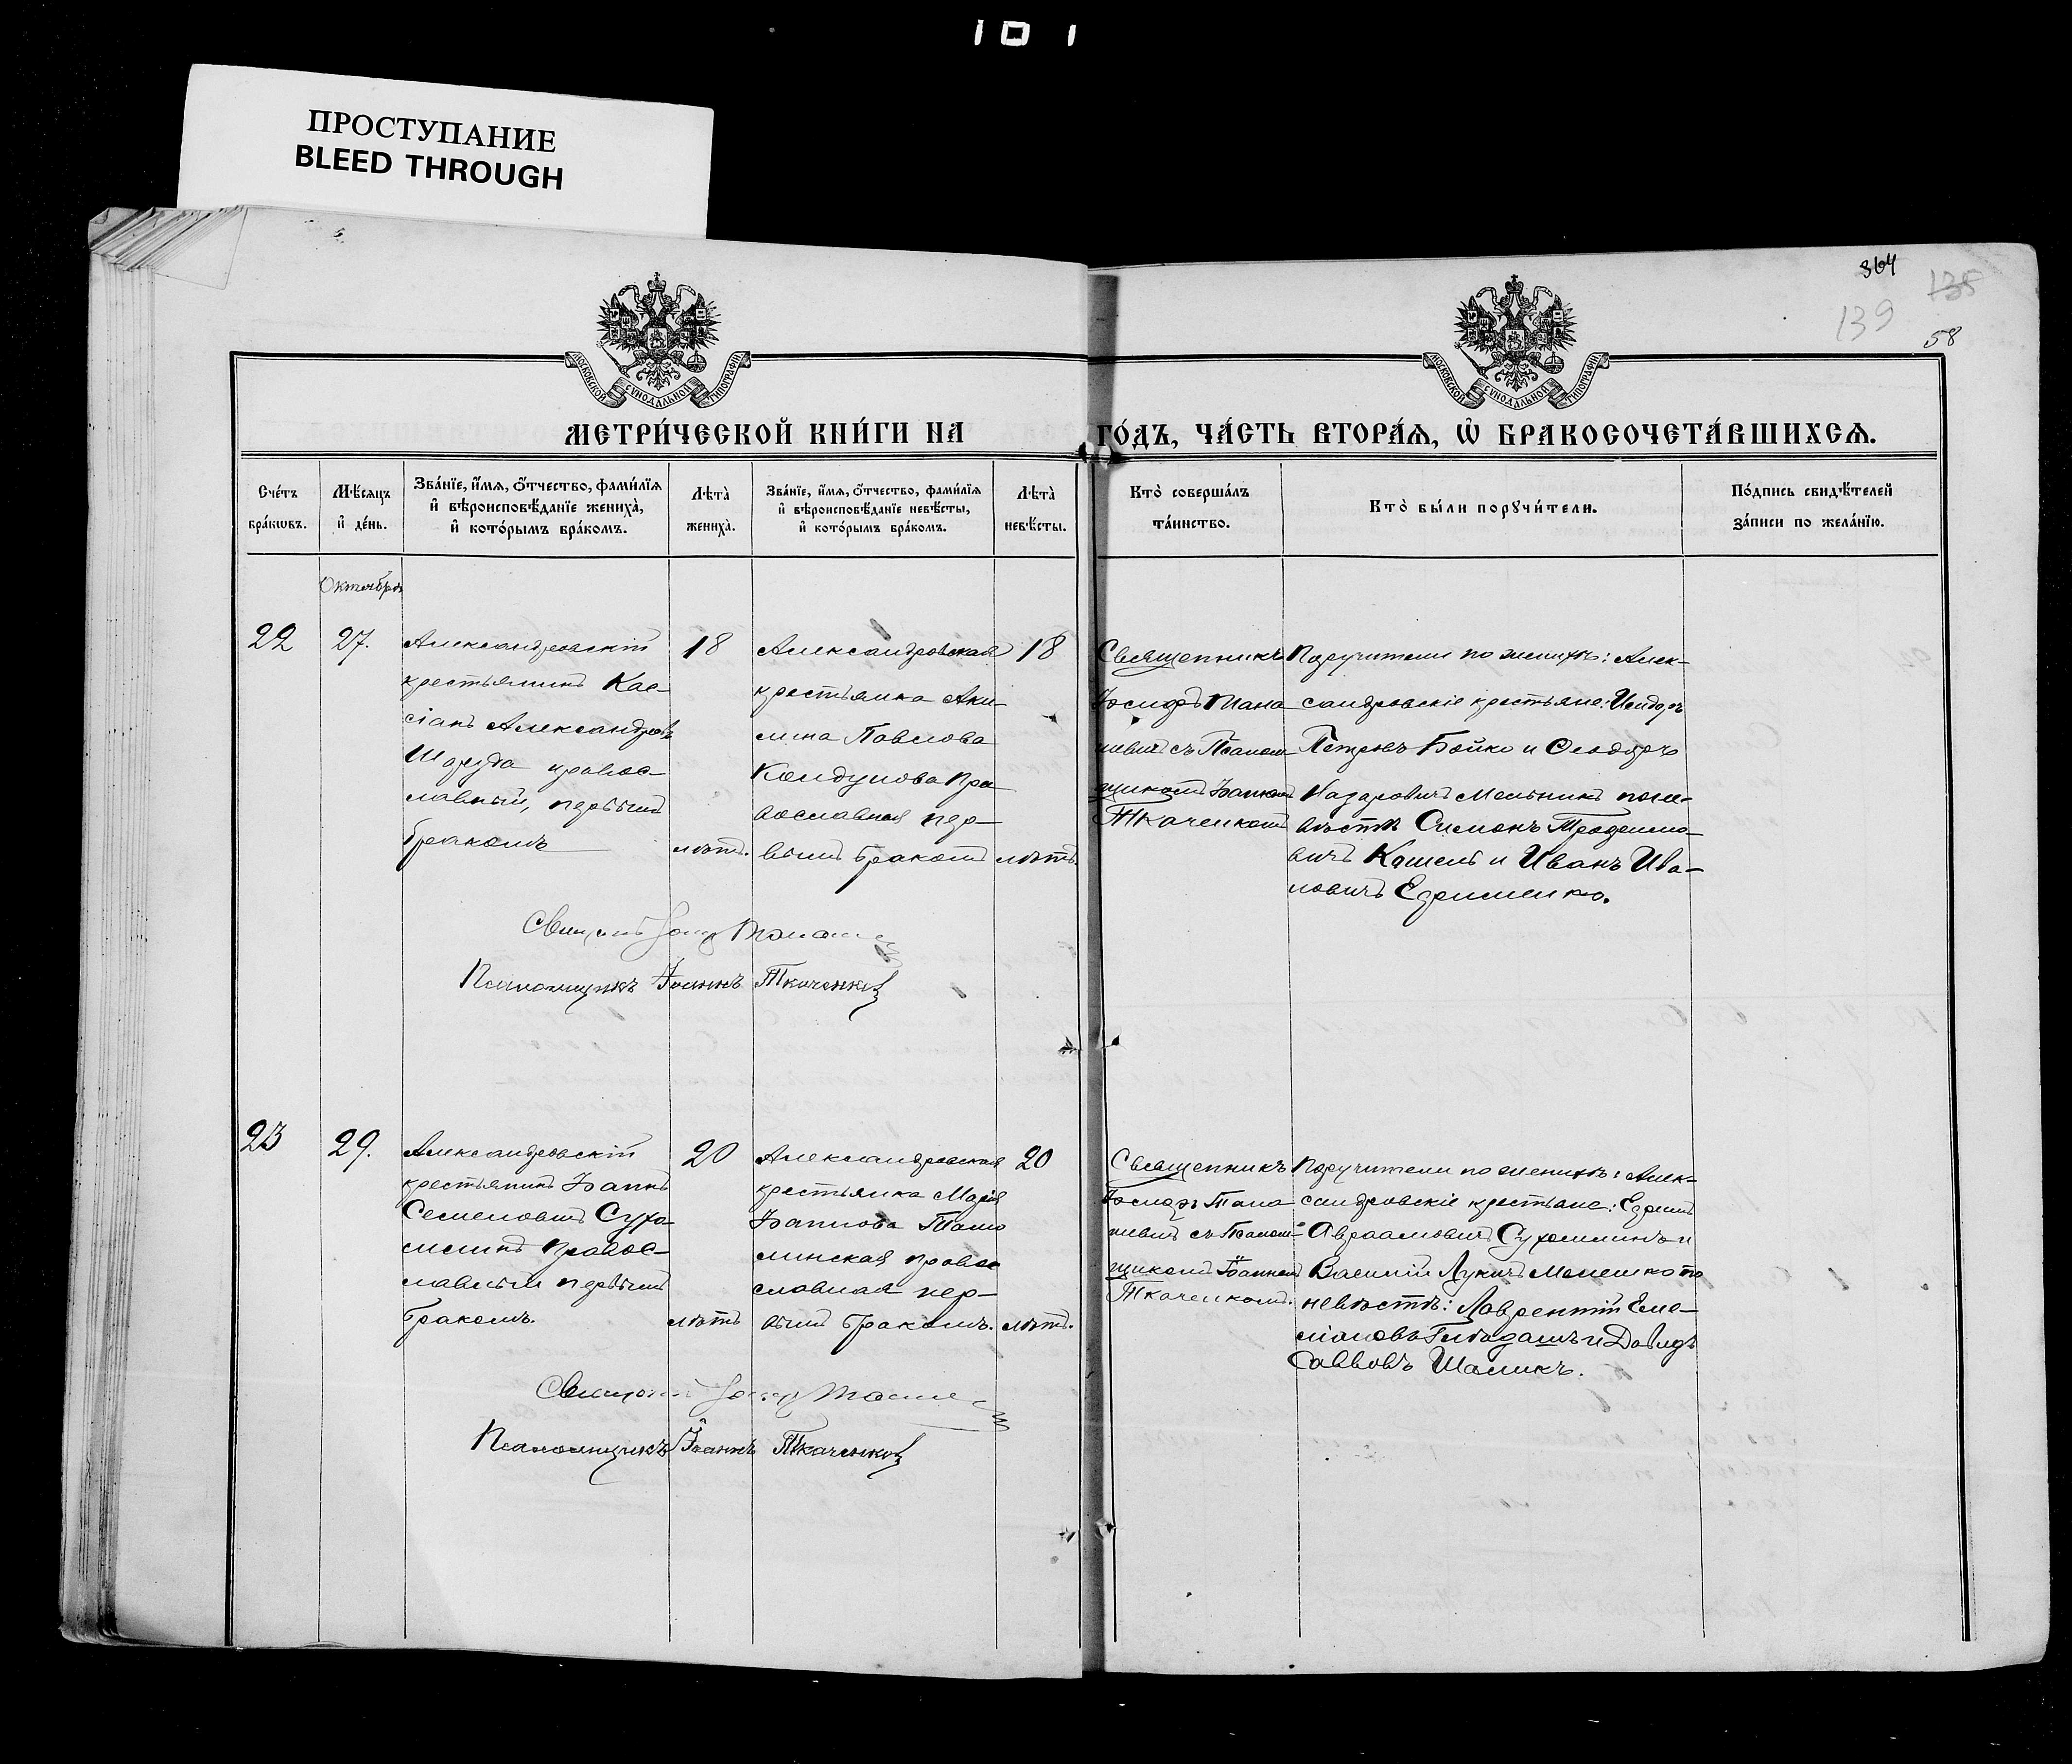 101
ПРОСТУПАНИЕ
BLEED THROUGH
364
138
139
58
МОСКОВСКОЙ СѴНОДАЛЬНОЙ ТИПОГРАФІИ
МОСКОВСКОЙ СѴНОДАЛЬНОЙ ТИПОГРАФІИ
МЕТРИ́ЧЕСКОЙ КНИ́ГИ НА ГО́ДЪ, ЧА́СТЬ ВТОРА́Ѧ, Ѽ БРАКОСОЧЕТА́ВШИХСѦ.
Сче́тъ
бра́кωвъ.
Мѣ́сяцъ
и҆ де́нь.
Зва́нїе, и҆́мя, ѻ҆́тчество, фами́лїя
и҆ вѣроисповѣ́данїе жениха̀,
и҆ кото́рымъ бра́комъ.
Лѣта̀
жениха̀.
Зва́нїе, и҆́мя, ѻ҆́тчество, фами́лїя
и҆ вѣроисповѣ́данїе невѣ́сты,
и҆ кото́рымъ бра́комъ.
Лѣта̀
невѣ́сты.
Кто̀ соверша́лъ
та́инство.
Кто̀ бы́ли порꙋчи́тели.
По́дпись свидѣ́телей
за́писи по жела́нїю.
Октября
22
27.
Александровскій
крестьянинъ Кас-
сіанъ Александровъ
правос-
лавный, первымъ
бракомъ
18
лѣтъ.
Александровская
крестьянка Аки-
лина Павлова
Колдунова пра
вославная пер-
вымъ бракомъ
18
лѣтъ.
Священникъ
Іосифъ
съ Псалом-
щикомъ Іоанномъ
Ткаченкомъ
Поручители по женихѣ: Алек-
сандровскіе крестьяне: Исидоръ
Петровъ Бойко и Ѳеодоръ
Назаровичъ Мельникъ по не-
вѣстѣ Симонъ
вичъ Кошель и Иванъ Ива-
новичъ Ефименко.
Псаломщикъ Іоаннъ Ткаченко
23
29.
Александровскій
крестьянинъ Іоаннъ
Семеновичъ Сухо-
млинъ правос-
лавный первымъ
бракомъ.
20
лѣтъ
Александровская
крестьянка Марія
Іоаннова
линская право
славная пер-
вымъ бракомъ.
20
лѣтъ.
Священникъ
Іосифъ
съ Псалом-
щикомъ Іоанномъ
Ткаченкомъ.
Поручители по женихѣ: Алек-
сандровскіе крестьяне: Ефимъ
Авраамовичъ Сухомлинъ и
Василій Лукичъ Мелешко по
невѣстѣ: Лаврентій Еме-
ліановъ и Давидъ
Саввовъ Шаликъ.
Псаломщикъ Іоаннъ Ткаченко